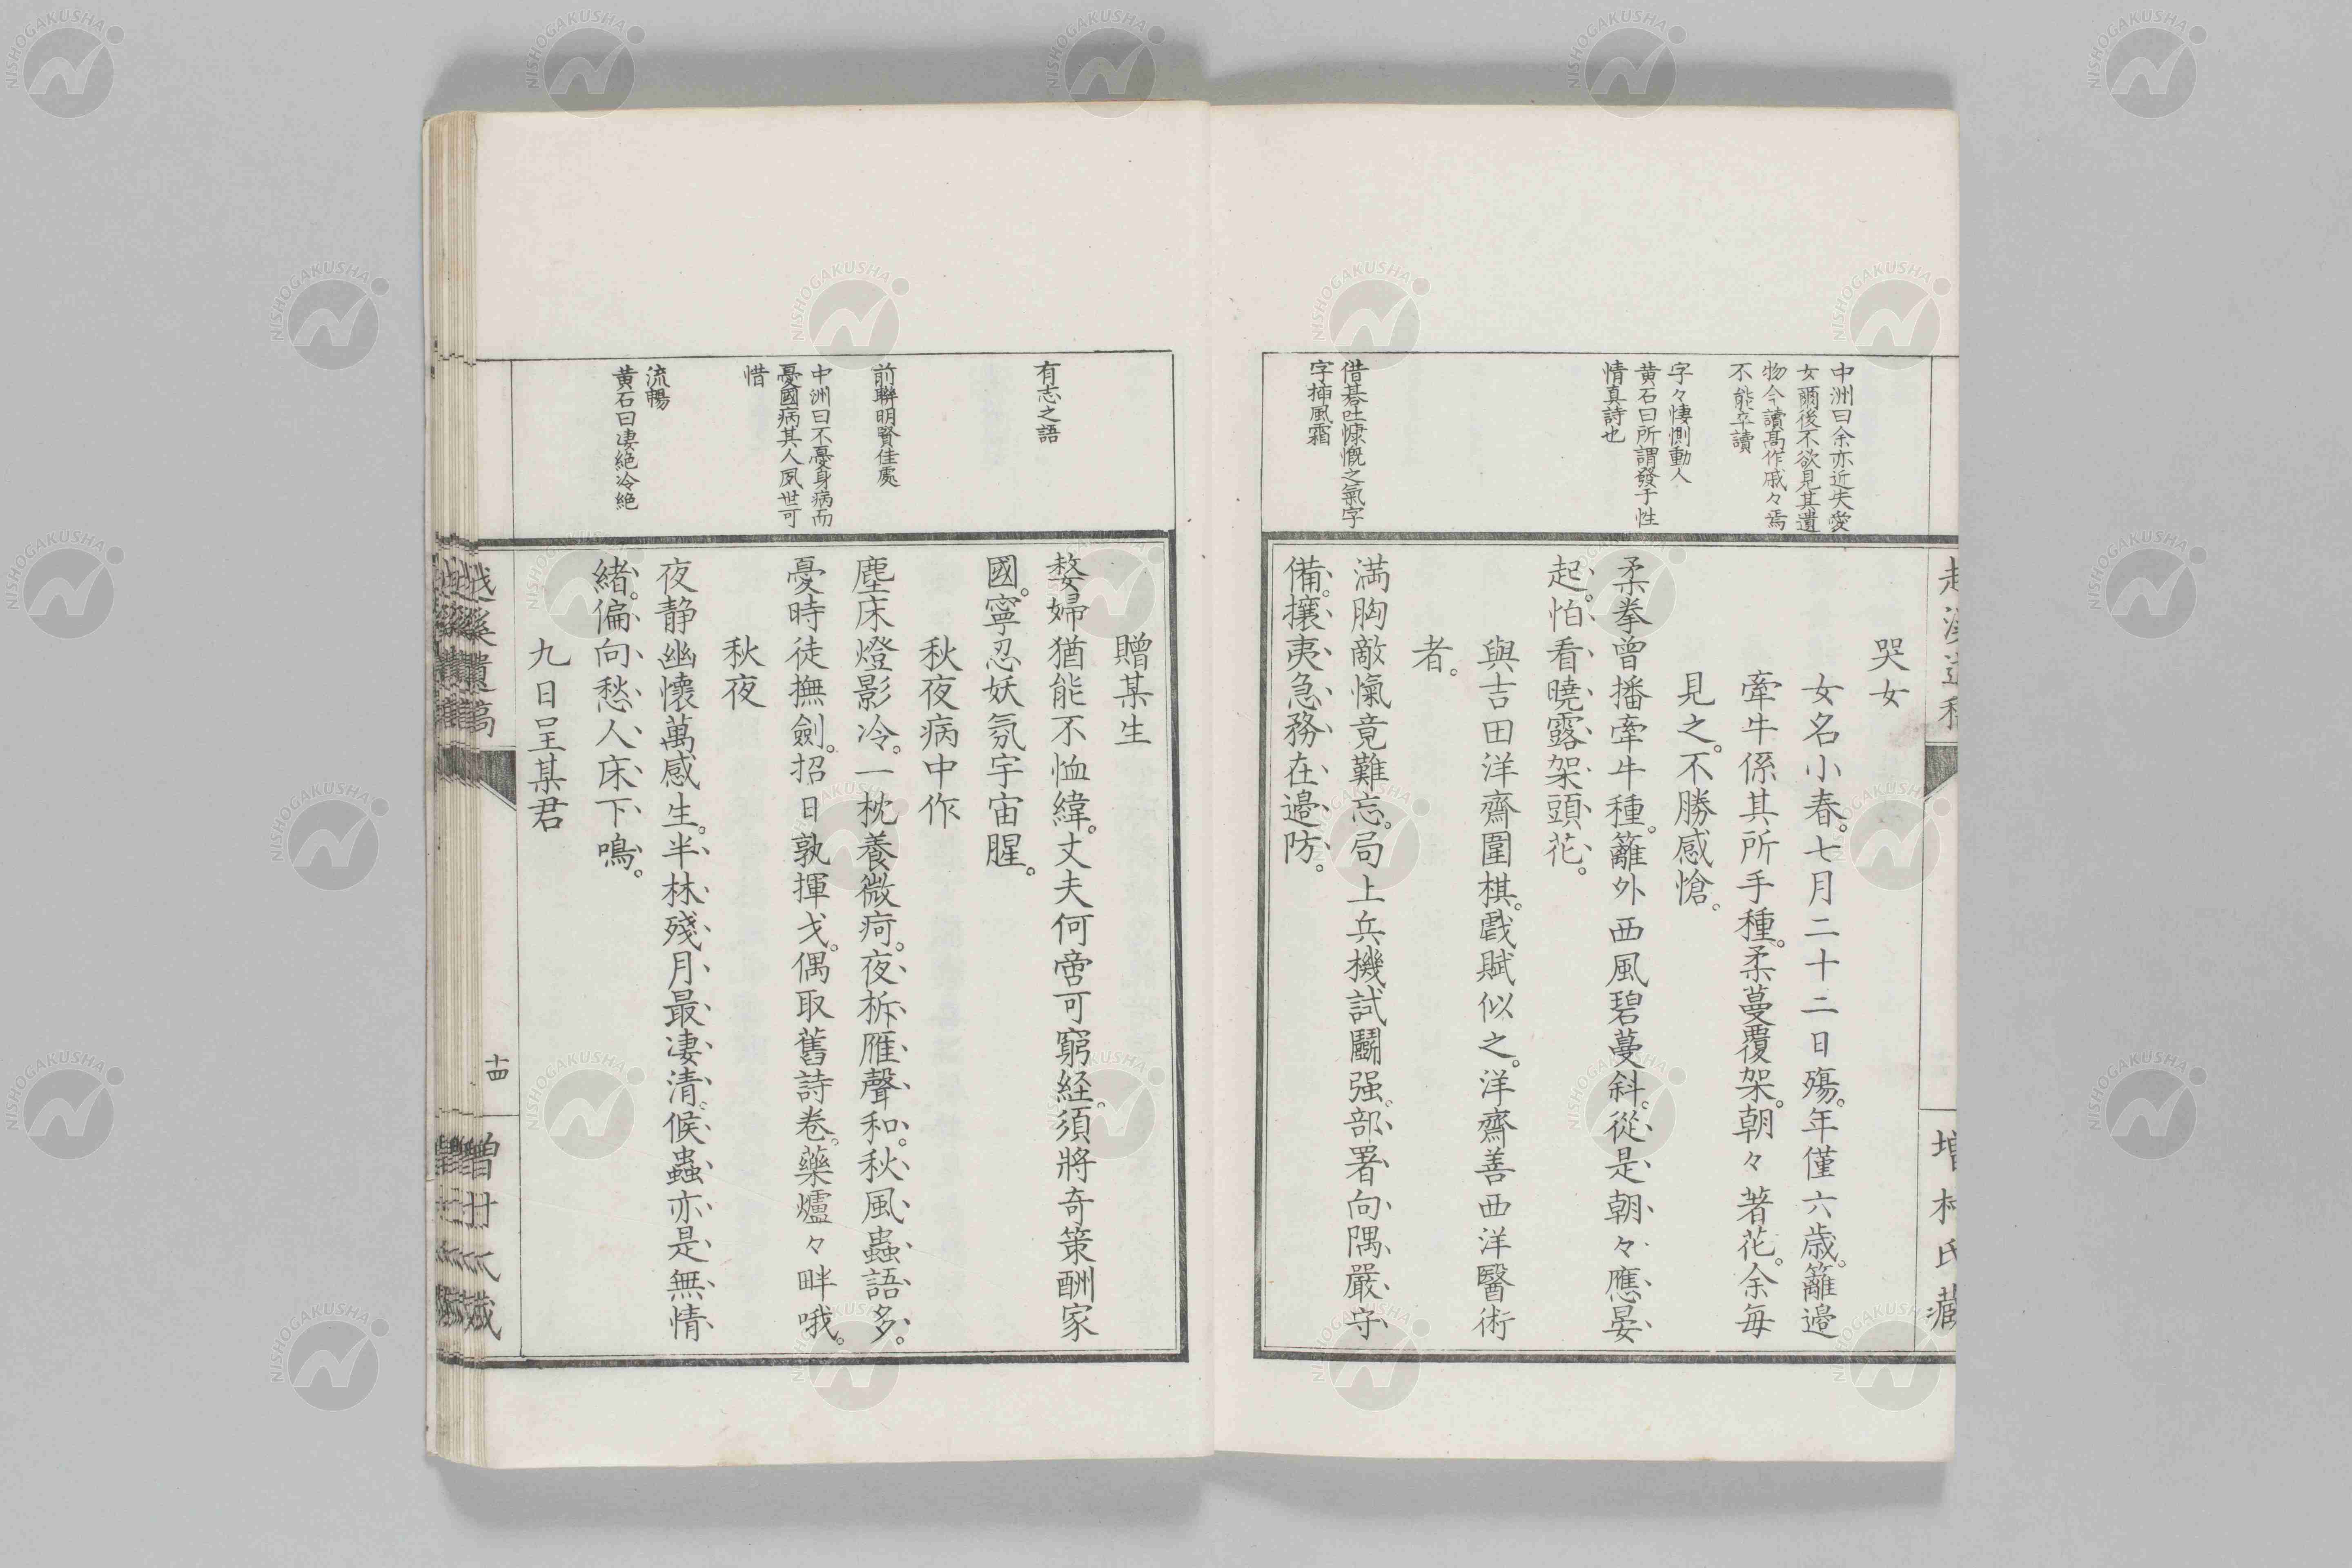 中洲曰余亦近失愛
女爾後不欲見其遺
物今讀高作戚々焉
不能卒讀
字々悽惻動人
黄石曰所謂發于性
情真詩也
借碁吐慷慨之氣字
字挿風霜
哭女
女名小春。七月二十二日殤。年僅六歳。籬邉
牽牛係其所手種。柔蔓覆架。朝々著花。余毎
見之。不勝感愴。
柔拳曾播牽牛種。籬外西風碧蔓斜。從是朝々應晏
起。怕看曉露架頭花。
與吉田洋齋圍棋。戲賦似之。洋齋善西洋醫術
者。
満胸敵愾竟難忘。局上兵機試鬪强。部署向隅嚴守
備。攘夷急務在邉防。
増村氏藏
有志之語
前聯明賢佳處
中洲曰不憂身病而
憂國病其人夙世可
惜
流暢
黄石曰凄絶冷絶
贈某生
嫠婦猶能不恤緯。丈夫何啻可窮経。須將奇策酬家
國。寧忍妖氛宇宙腥。
秋夜病中作
塵床燈影冷。一枕養微疴。夜柝雁聲和。秋風蟲語多。
憂時徒撫劍。招日孰揮戈。偶取舊詩卷。藥爐々畔哦。
秋夜
夜静幽懷萬感生。半林殘月最凄清。候蟲亦是無情
緒。偏向愁人床下鳴。
九日呈某君
越溪遺稿
十四
NISHOGAKUSHA